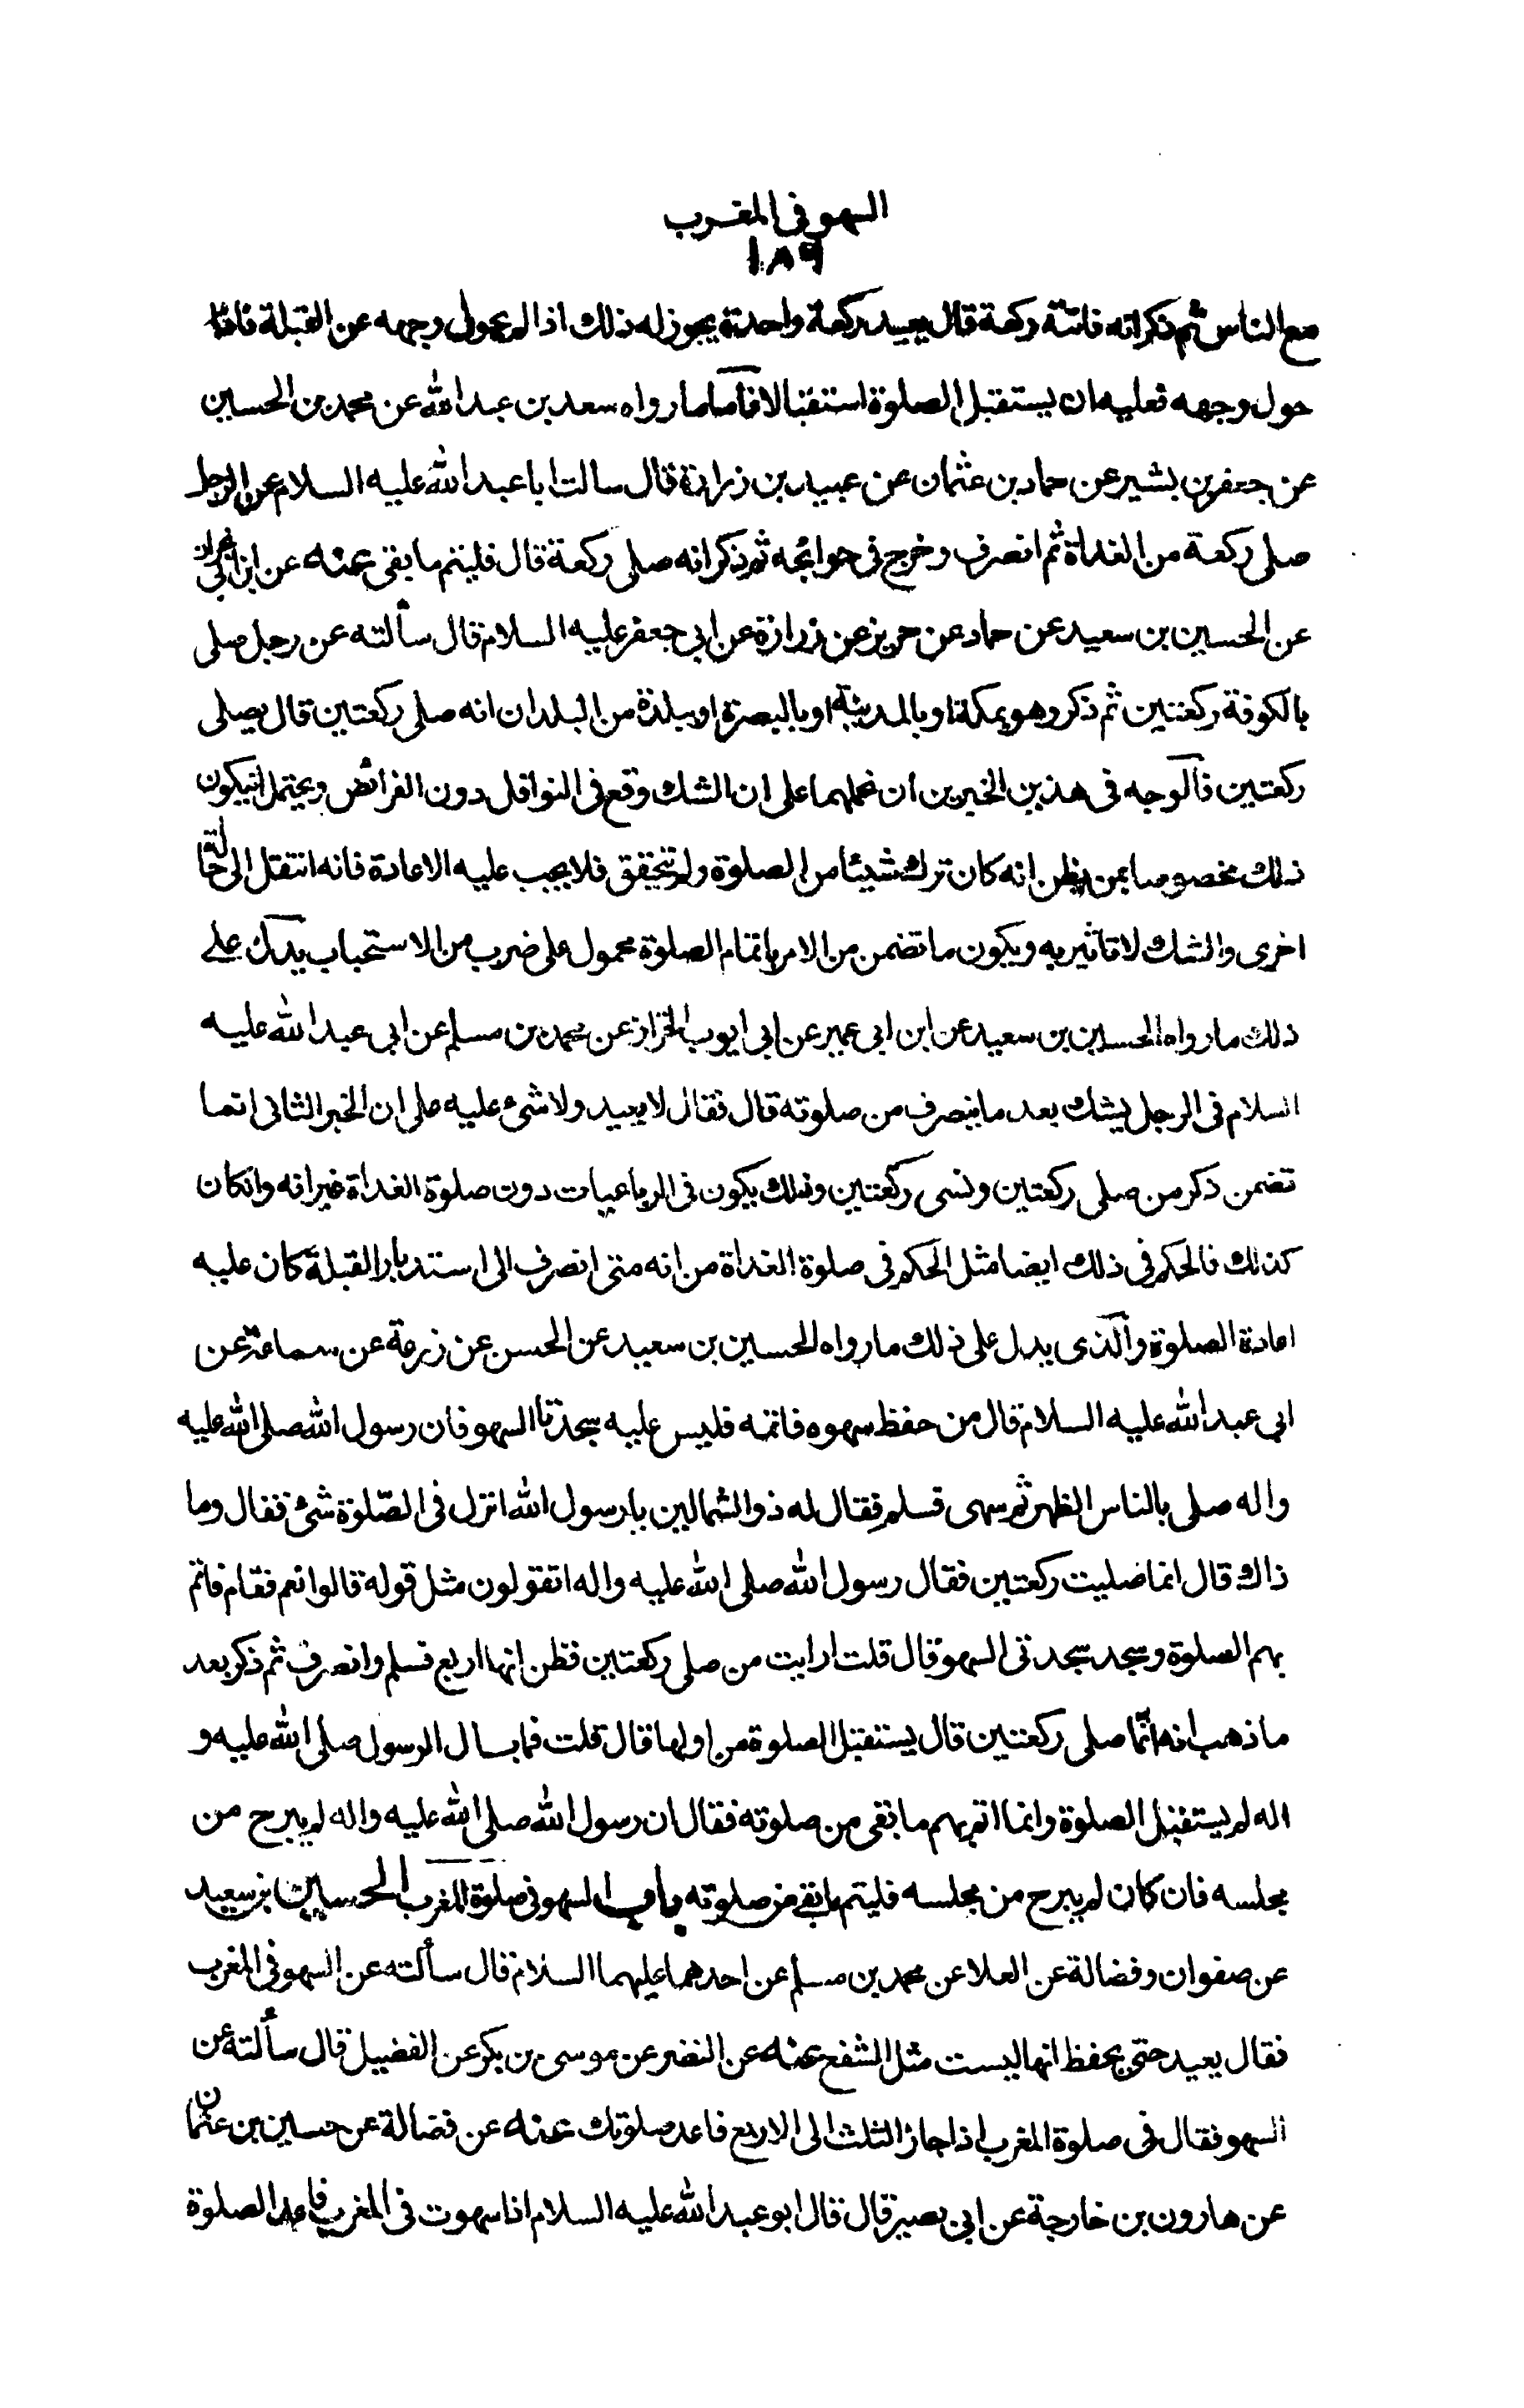 السهو فى المغرب
١٨٩
مع الناس ثم ذكر انه فاتته ركعة قال يعيد ركعة واحدة يجوز له ذلك اذا لم يحول وجهه عن القبلة فاذا
حول وجهه فعليه ان يستقبل الصلوة استقبالا فاما ما رواه سعد بن عبد الله عن محمد بن الحسين
عن جعفر بن بشير عن حماد بن عثمان عن عبيد بن زرارة قال سالت ابا عبد الله عليه السلام عن الرجل
صلى ركعة من الغداة ثم انصرف وخرج فى حوائجه ثم ذكر انه صلى ركعة قال فليتم ما بقى عنه عن ابن ابى نجران
عن الحسين بن سعيد عن حماد عن حريز عن زرارة عن ابى جعفر عليه السلام قال سألته عن رجل صلى
بالكوفة ركعتين ثم ذكر وهو بمكة او بالمدينة او بالبصرة او ببلدة من البلدان انه صلى ركعتين قال يصلى
ركعتين فالوجه فى هذين الخبرين ان نحملهما على ان الشك وقع فى النوافل دون الفرائض ويحتمل ان يكون
ذلك مخصوصا بمن يظن انه كان ترك شيئا من الصلوة ولم يتحقق فلا يجب عليه الاعادة فانه انتقل الى حالة
اخرى والشك لا تاثير به ويكون ما تضمن من الامر باتمام الصلوة محمول على ضرب من الاستحباب يدل على
ذلك ما رواه الحسين بن سعيد عن ابن ابى عمير عن ابى ايوب الخزاز عن محمد بن مسلم عن ابى عبد الله عليه
السلام فى الرجل يشك بعد ما ينصرف من صلوته قال فقال لا يعيد ولا شئ عليه على ان الخبر الثانى انما
تضمن ذكر من صلى ركعتين ونسى ركعتين وذلك يكون فى الرباعيات دون صلوة الغداة غير انه وان كان
كذلك فالحكم فى ذلك ايضا مثل الحكم فى صلوة الغداة من انه متى انصرف الى استدبار القبلة كان عليه
اعادة الصلوة والذى يدل على ذلك ما رواه الحسين بن سعيد عن الحسن عن زرعة عن سماعة عن
ابى عبد الله عليه السلام قال من حفظ سهوه فاتمه فليس عليه سجدتا السهو فان رسول الله صلى الله عليه
واله صلى بالناس الظهر ثم سهى فسلم فقال له ذو الشمالين يا رسول الله انزل فى الصّلوة شئ فقال وما
ذاك قال انما صليت ركعتين فقال رسول الله صلى الله عليه واله اتقولون مثل قوله قالوا نعم فقام فاتم
بهم الصلوة وسجد سجدتى السهو قال قلت ارايت من صلى ركعتين فظن انها اربع فسلم وانصرف ثم ذكر بعد
ما ذهب انه انّما صلى ركعتين قال يستقبل الصلوة من اولها قال قلت فما بال الرسول صلى الله عليه و
اله لم يستقبل الصلوة وانما اتم بهم ما بقى من صلوته فقال ان رسول الله صلى الله عليه واله لم يبرح من
مجلسه فان كان لم يبرح من مجلسه فليتم ما بقى من صلوته باب السهو فى صلوة المغرب الحسين بن سعيد
عن صفوان وفضالة عن العلا عن محمد بن مسلم عن احدهما عليهما السلام قال سألته عن السهو فى المغرب
فقال يعيد حتى يحفظ انها ليست مثل الشفع عنه عن النضر عن موسى بن بكر عن الفضيل قال سألته عن
السهو فقال فى صلوة المغرب اذا جاز الثلث الى الاربع فاعد صلوتك عنه عن فضالة عن حسين بن عثمان
عن هارون بن خارجة عن ابى بصير قال قال ابو عبد الله عليه السلام اذا سهوت فى المغرب فاعد الصلوة